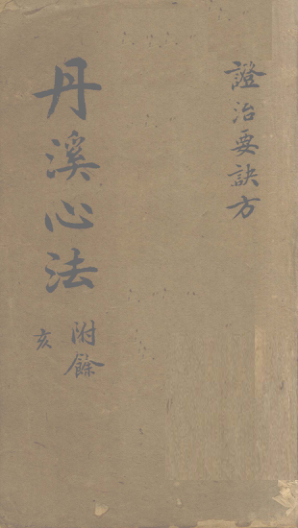 證治要訣方
丹溪心法
附餘
亥